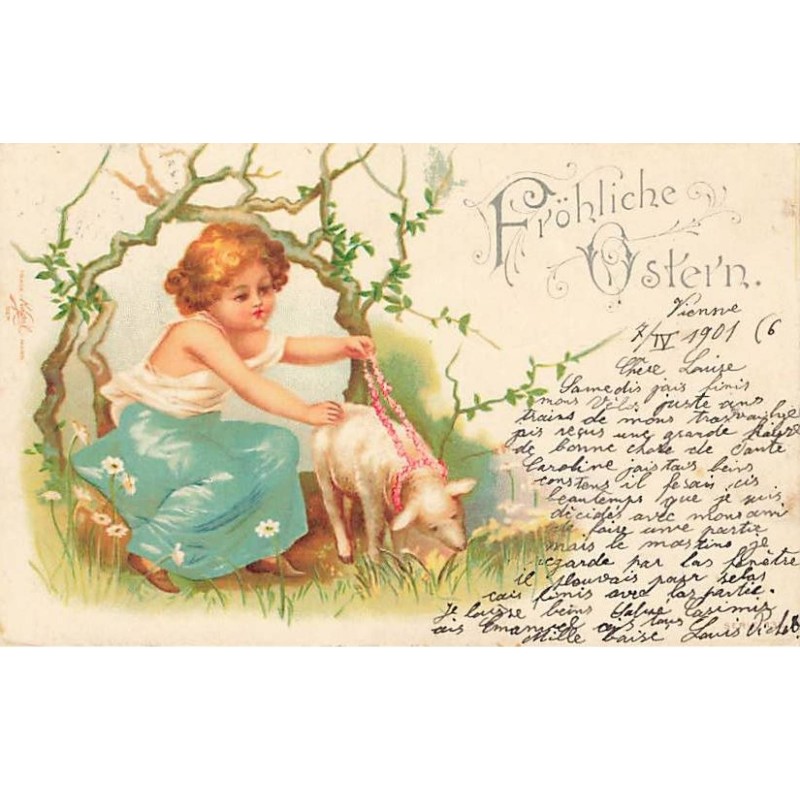 Fröhliche
Ostern.
Vienne
7/IV 1901 (6
Chère Louise
Samedis jais finis
mons Vélos juste ans
trains de mons travailge
jais reçus une grande
de bonne chose de Sante
Caroline jaistais beins
constens il fesais cis
beautemps que je suis
décides avec mons ami
de faire unne partie
mais le mastins je
regarde par las fenêtre
il plouvais pour selas
cais finis avec las partie.
Je laisse beins Salue Casimir
ais Emanuel ais tous
Mille baise Louis